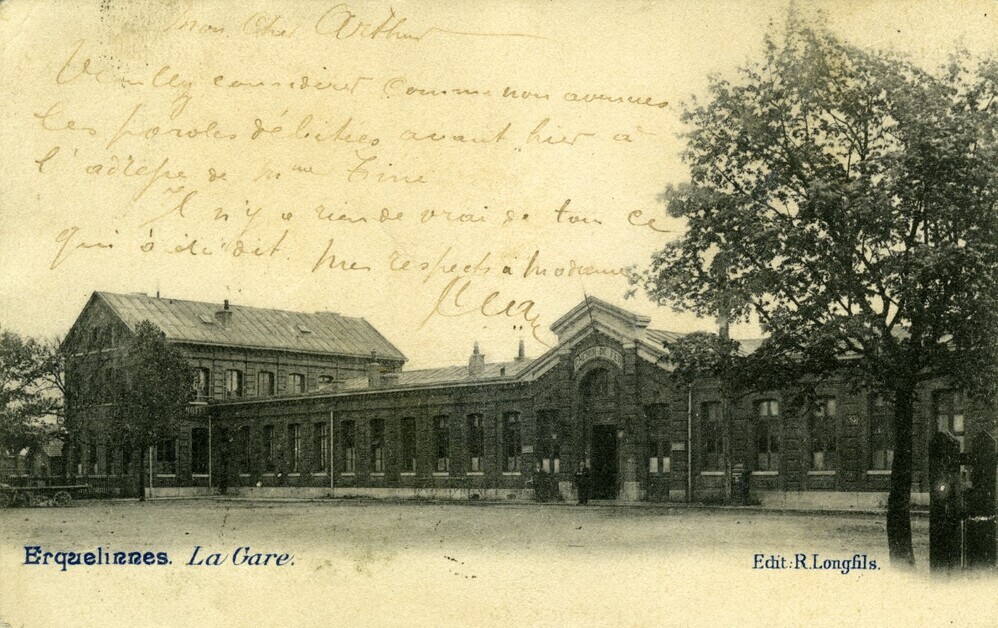 Mon cher Arthur
Veuillez considérer comme non avenues
les paroles débitées avant hier à
l'adresse de Mme Tine
Il n'y a rien de vrai de tout ce
qui a été dit. Mes respects à Madame
Erquelinnes. La Gare.
Edit: R. Longfils.